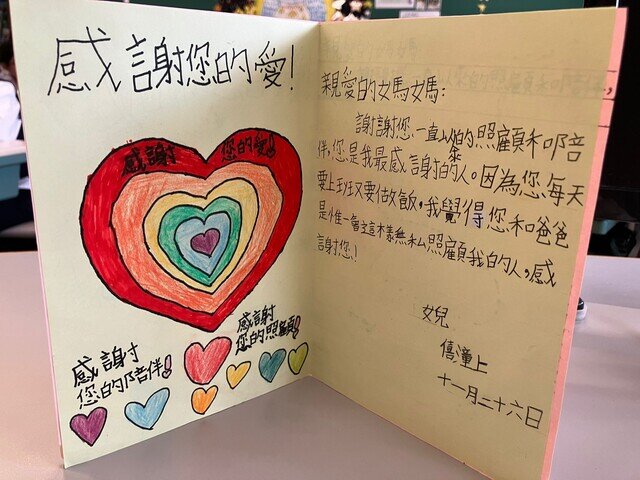 感謝您的愛!
感謝 您的愛!
感謝
您的陪伴!
感謝
您的照顧!
親愛的媽媽:
謝謝您一直以來的照顧和陪
伴,您是我最感謝的人。因為您每天
要上班又要做飯,我覺得您和爸爸
是惟一會這樣無私照顧我的人,感
謝您!
女兒
僖潼上
十一月二十六日